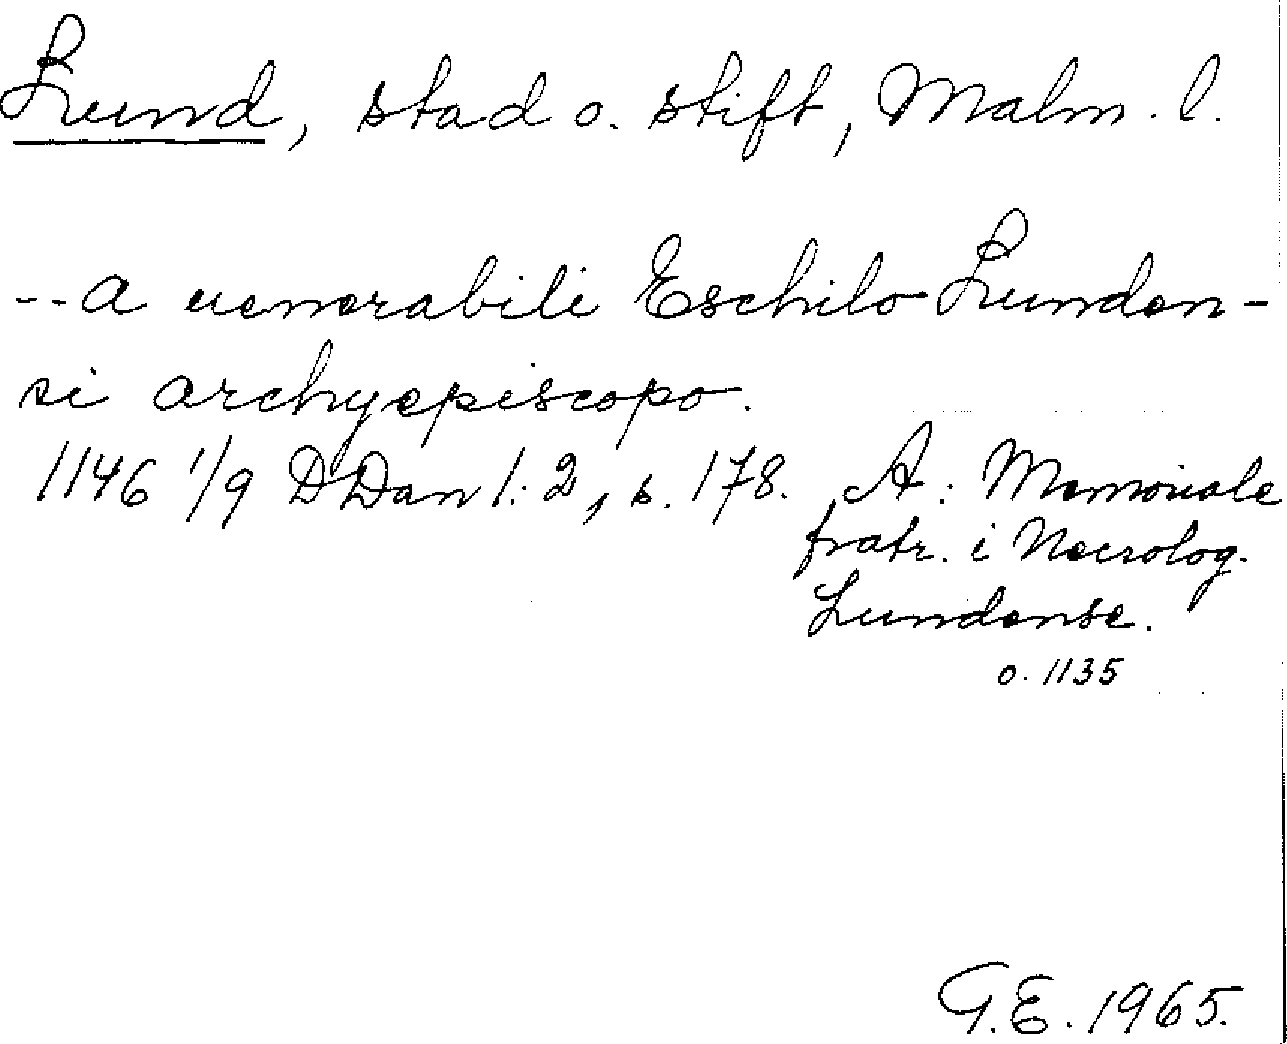 Lund, stad o. stift, Malm. l.
--a uenerabili Eschilo Lunden-
si archyepiscopo.
1146 1/9 DDan 1:2, s. 178. A: Memoriale
fratr. i Necrolog.
Lundense.
o. 1135
G.E. 1965.